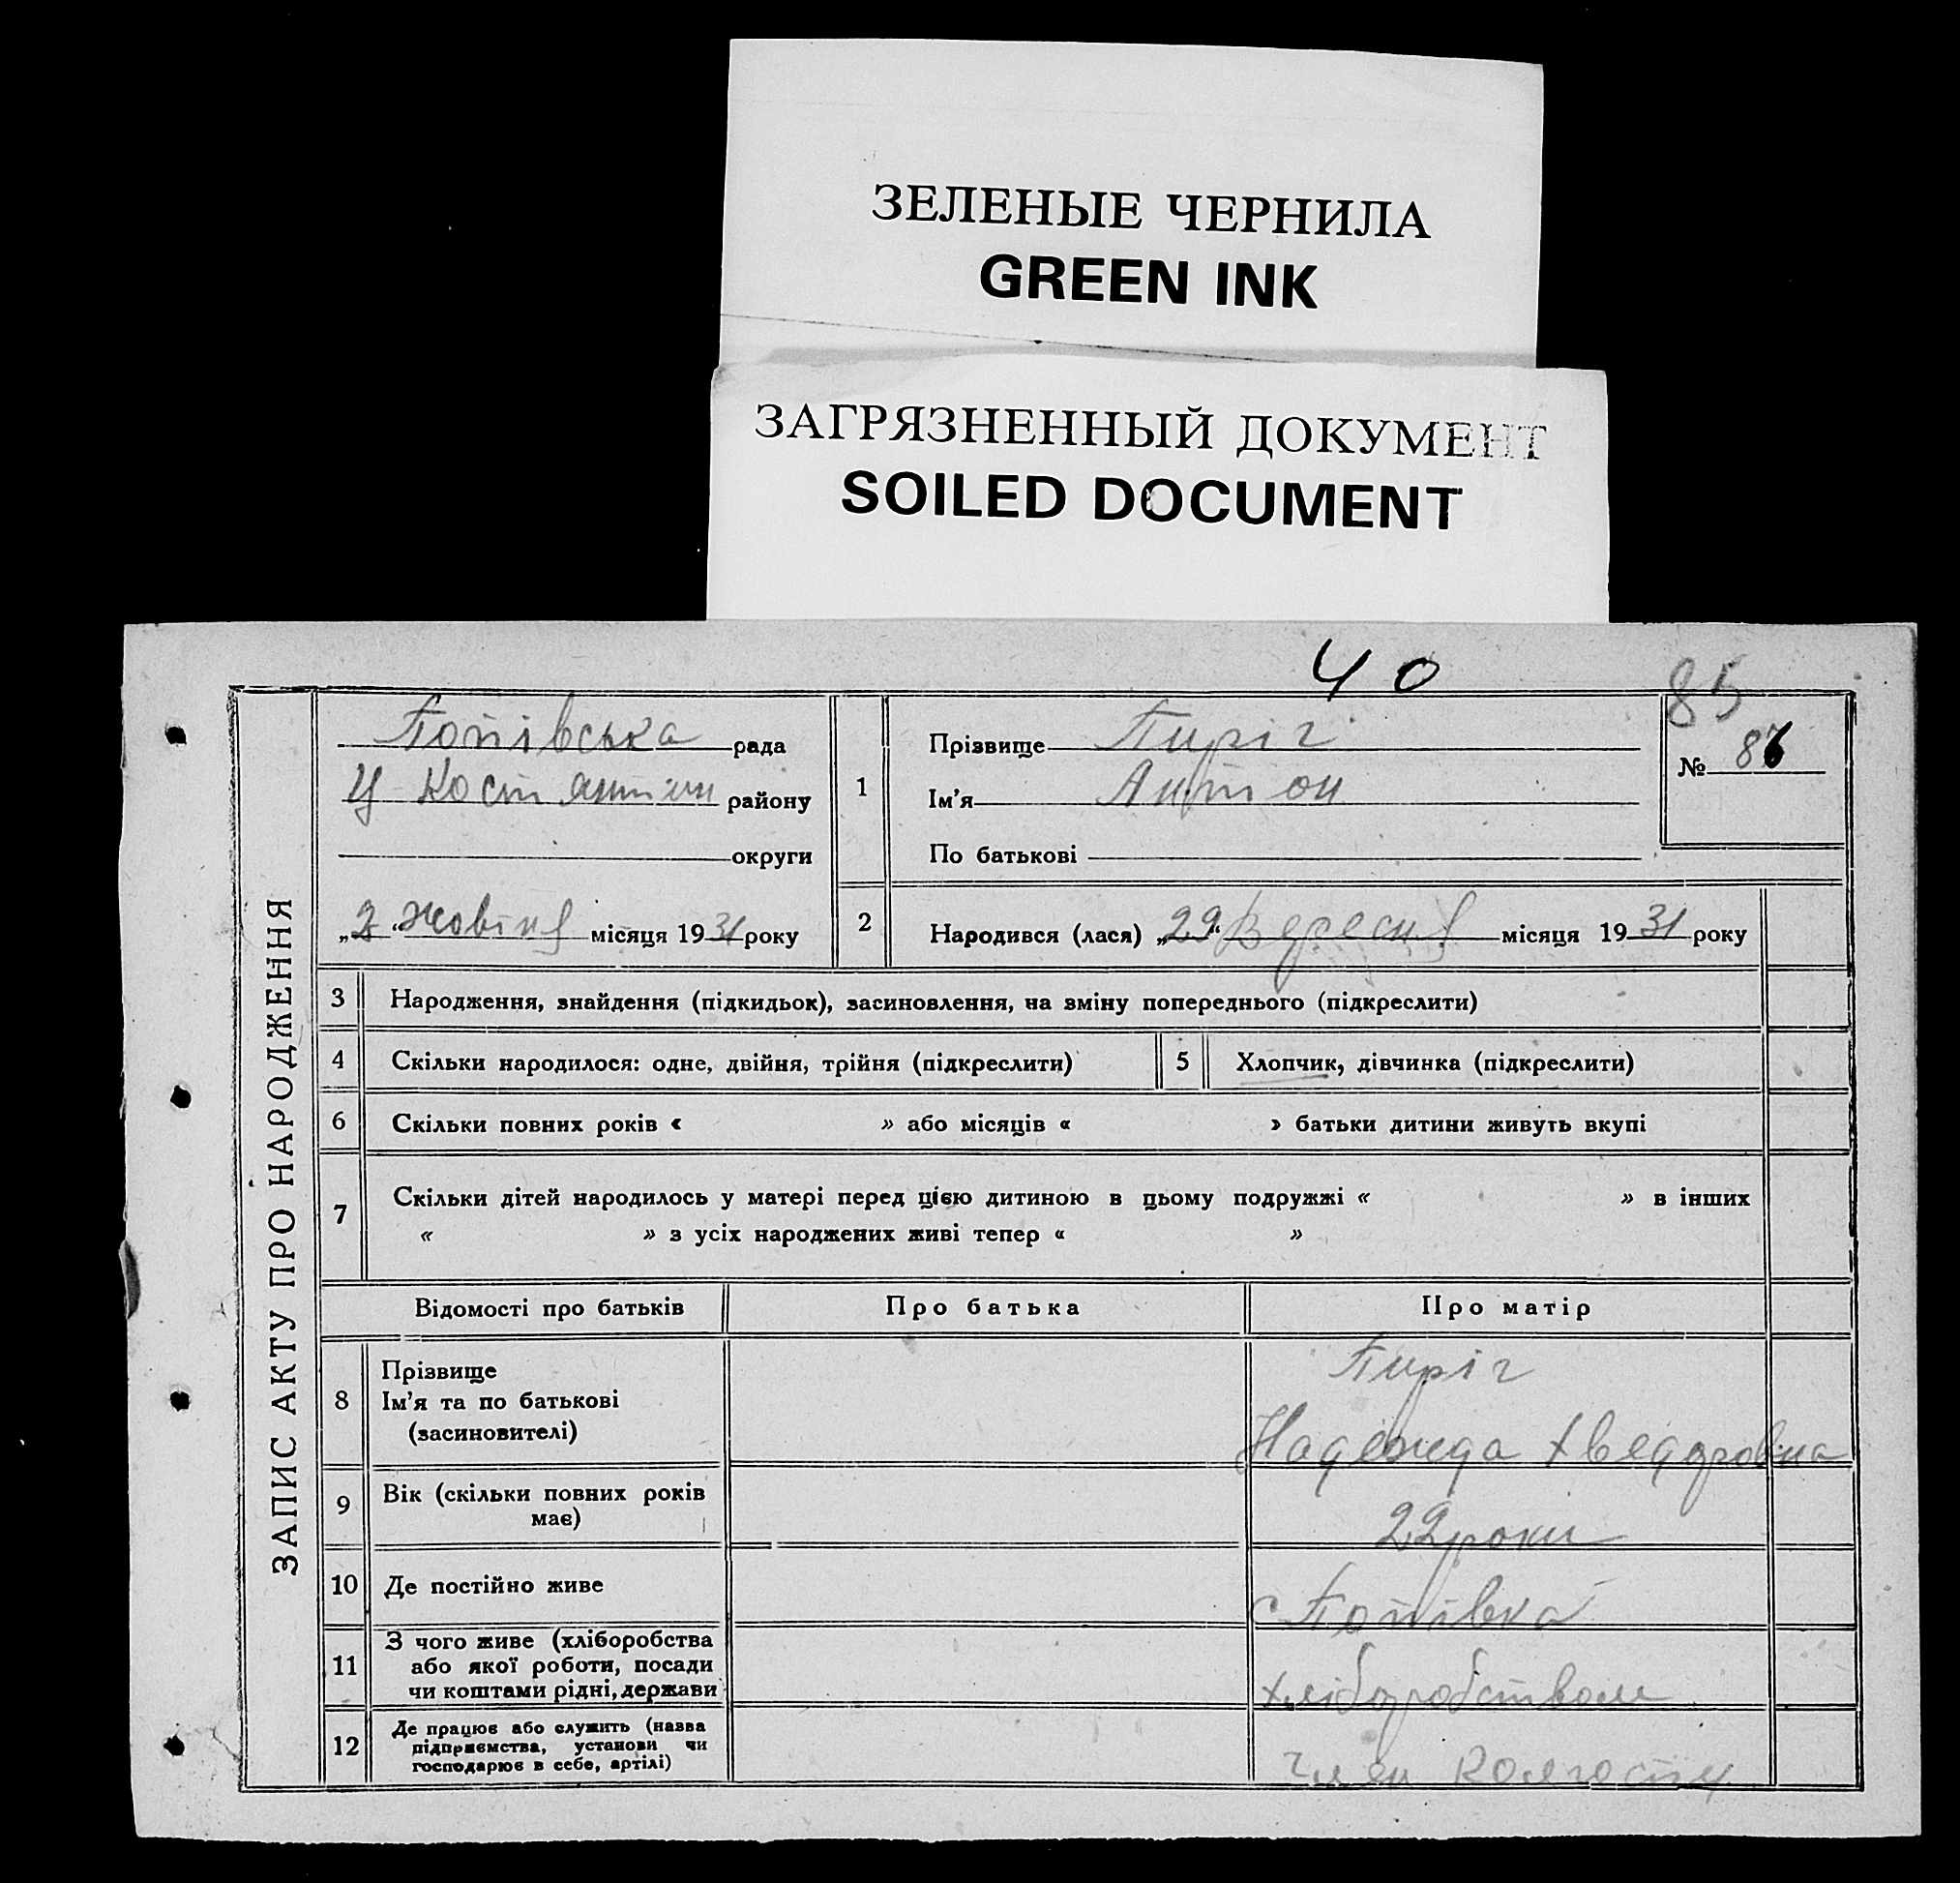 ЗЕЛЕНЫЕ ЧЕРНИЛА
GREEN INK
ЗАГРЯЗНЕННЫЙ ДОКУМЕНТ
SOILED DOCUMENT
40
85
ЗАПИС АКТУ ПРО НАРОДЖЕННЯ
Попівська рада
Ц-Костянтин району
округи
„2“ Жовтня місяця 1931 року
1
Прізвище Пиріг
Ім’я Антон
По батькові
№ 86
2 Народився (лася) „29“ Вересня місяця 1931 року
3 Народження, знайдення (підкидьок), засиновлення, на зміну попереднього (підкреслити)
4 Скільки народилося: одне, двійня, трійня (підкреслити) 5 Хлопчик, дівчинка (підкреслити)
6 Скільки повних років « » або місяців « » батьки дитини живуть вкупі
7 Скільки дітей народилось у матері перед цією дитиною в цьому подружжі « » в інших
« » з усіх народжених живі тепер « »
Відомості про батьків Про батька Про матір
8 Прізвище
Ім’я та по батькові
(засиновителі)
Пиріг
Надежда Хведоровна
9 Вік (скільки повних років
має)
22 роки
10 Де постійно живе с Попівка
11 З чого живе (хліборобства
або якої роботи, посади
чи коштами рідні, держави
хліборобством
12 Де працює або служить (назва
підприємства, установи чи
господарює в себе, артілі)
Член колгоспу